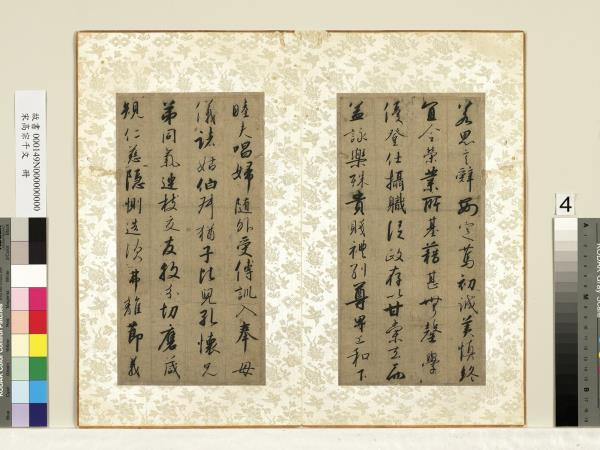 若思言辭安定篤初誠美慎終
宜令榮業所基藉甚無罄學
優登仕攝職從政存以甘棠去而
益詠樂殊貴賤禮別尊卑上和下
睦夫唱婦隨外受傅訓入奉母
儀諸姑伯叔猶子比兒孔懷兄
弟同氣連枝交友投分切磨箴
規仁慈隱惻造次弗離節義
故書000149N000000000
宋高宗千文 冊
4